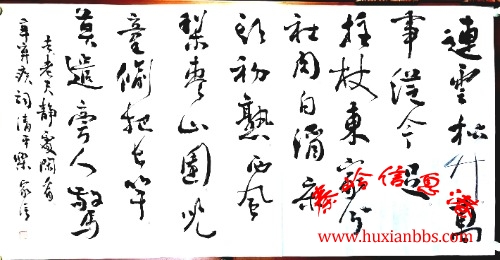 連雲松竹萬
事從今足
拄杖東家分
社肉白酒床
頭初熟西風
梨棗山園兒
童偷把長竿
莫遣旁人驚
去老夫靜處閑看
辛弃疾詞清平樂
信息
www.huxianbbs.com